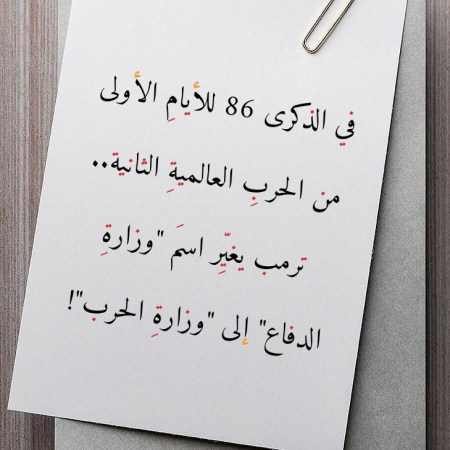 في الذكرى 86 للأيامِ الأولى
من الحربِ العالميةِ الثانية..
ترمب يغيِّر اسمَ "وزارةِ
الدفاع" إلى "وزارةِ الحرب"!